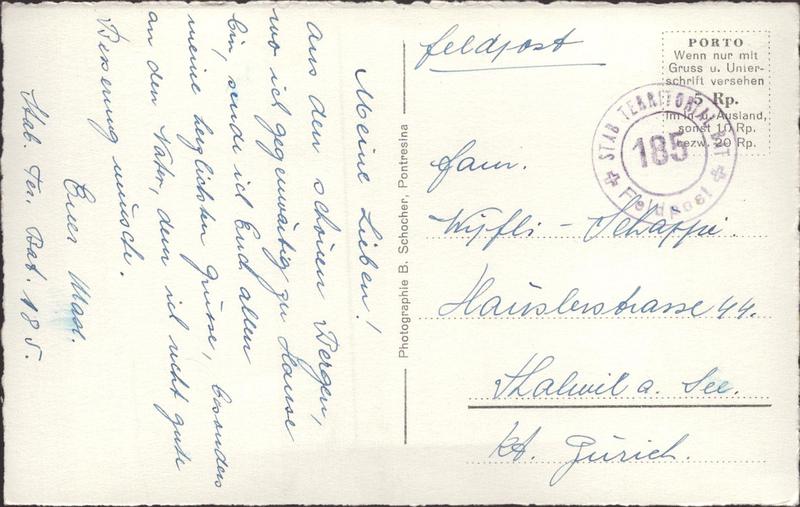 Meine Lieben!
Aus den schönen Bergen,
wo ich gegenwärtig zu Hause
bin, sende ich Euch allen
meine herzlichsten Grüsse, besonders
an den Vater, dem ich recht gute
Besserung wünsche.
Euer
Stab. Ter. Bat. 185.
Photographie B. Schocher, Pontresina
Feldpost
PORTO
Wenn nur mit
Gruss u. Unter-
schrift versehen
5 Rp.
im In- u. Ausland,
sonst 10 Rp.
bezw. 20 Rp.
STAB TERRITORIAL BAT
185
Feldpost
Fam.
Wipfli - Schappi.
Häuslerstrasse 44.
Thalwil a. See.
Kt. Zürich.